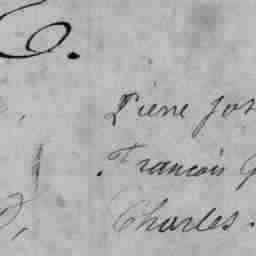 C.
Pierre Jos
François G
Charles.